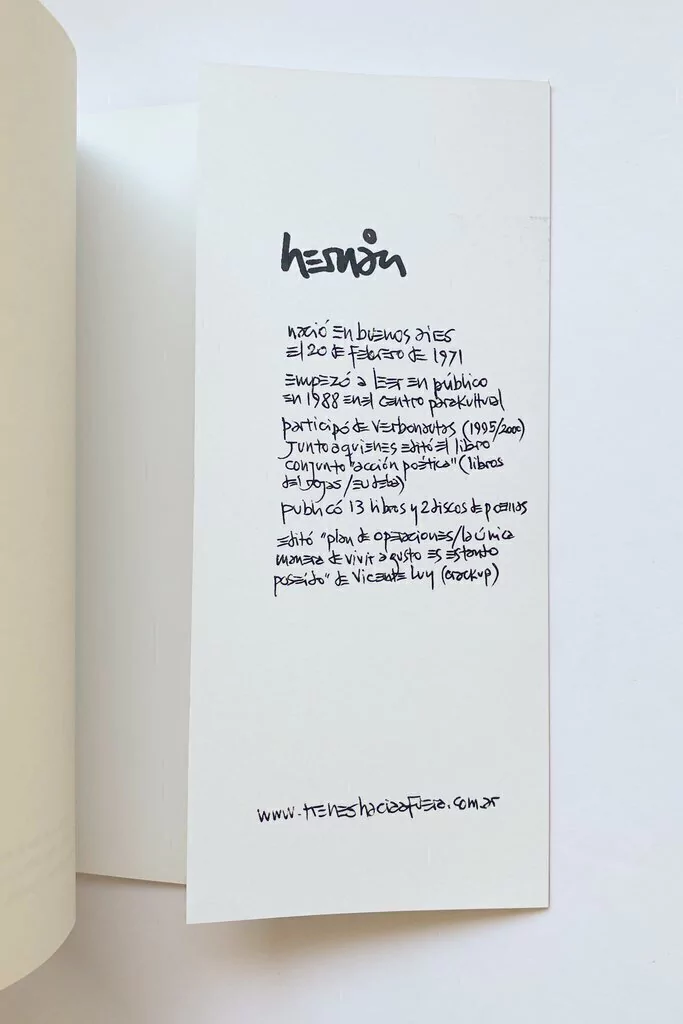 hernán
nació en buenos aires
el 20 de febrero de 1971
empezó a leer en público
en 1988 en el centro parakultural
participó de verbonautas (1995/2000)
junto a quienes editó el libro
conjunto "acción poética" (libros
del rojas/eudeba)
publicó 13 libros y 2 discos de poemas
editó "plan de operaciones/la única
manera de vivir a gusto es estando
poseído" de Vicente Luy (crackup)
www.treneshaciaafuera.com.ar